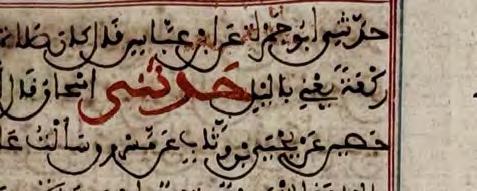 حدثني ابو جمرة عن ابن عباس قال كان صلاة
ركعة يعني بالليل حدثني اسحاق قال
حصين عن يحيى بن وثاب عن مسروق سألت عا